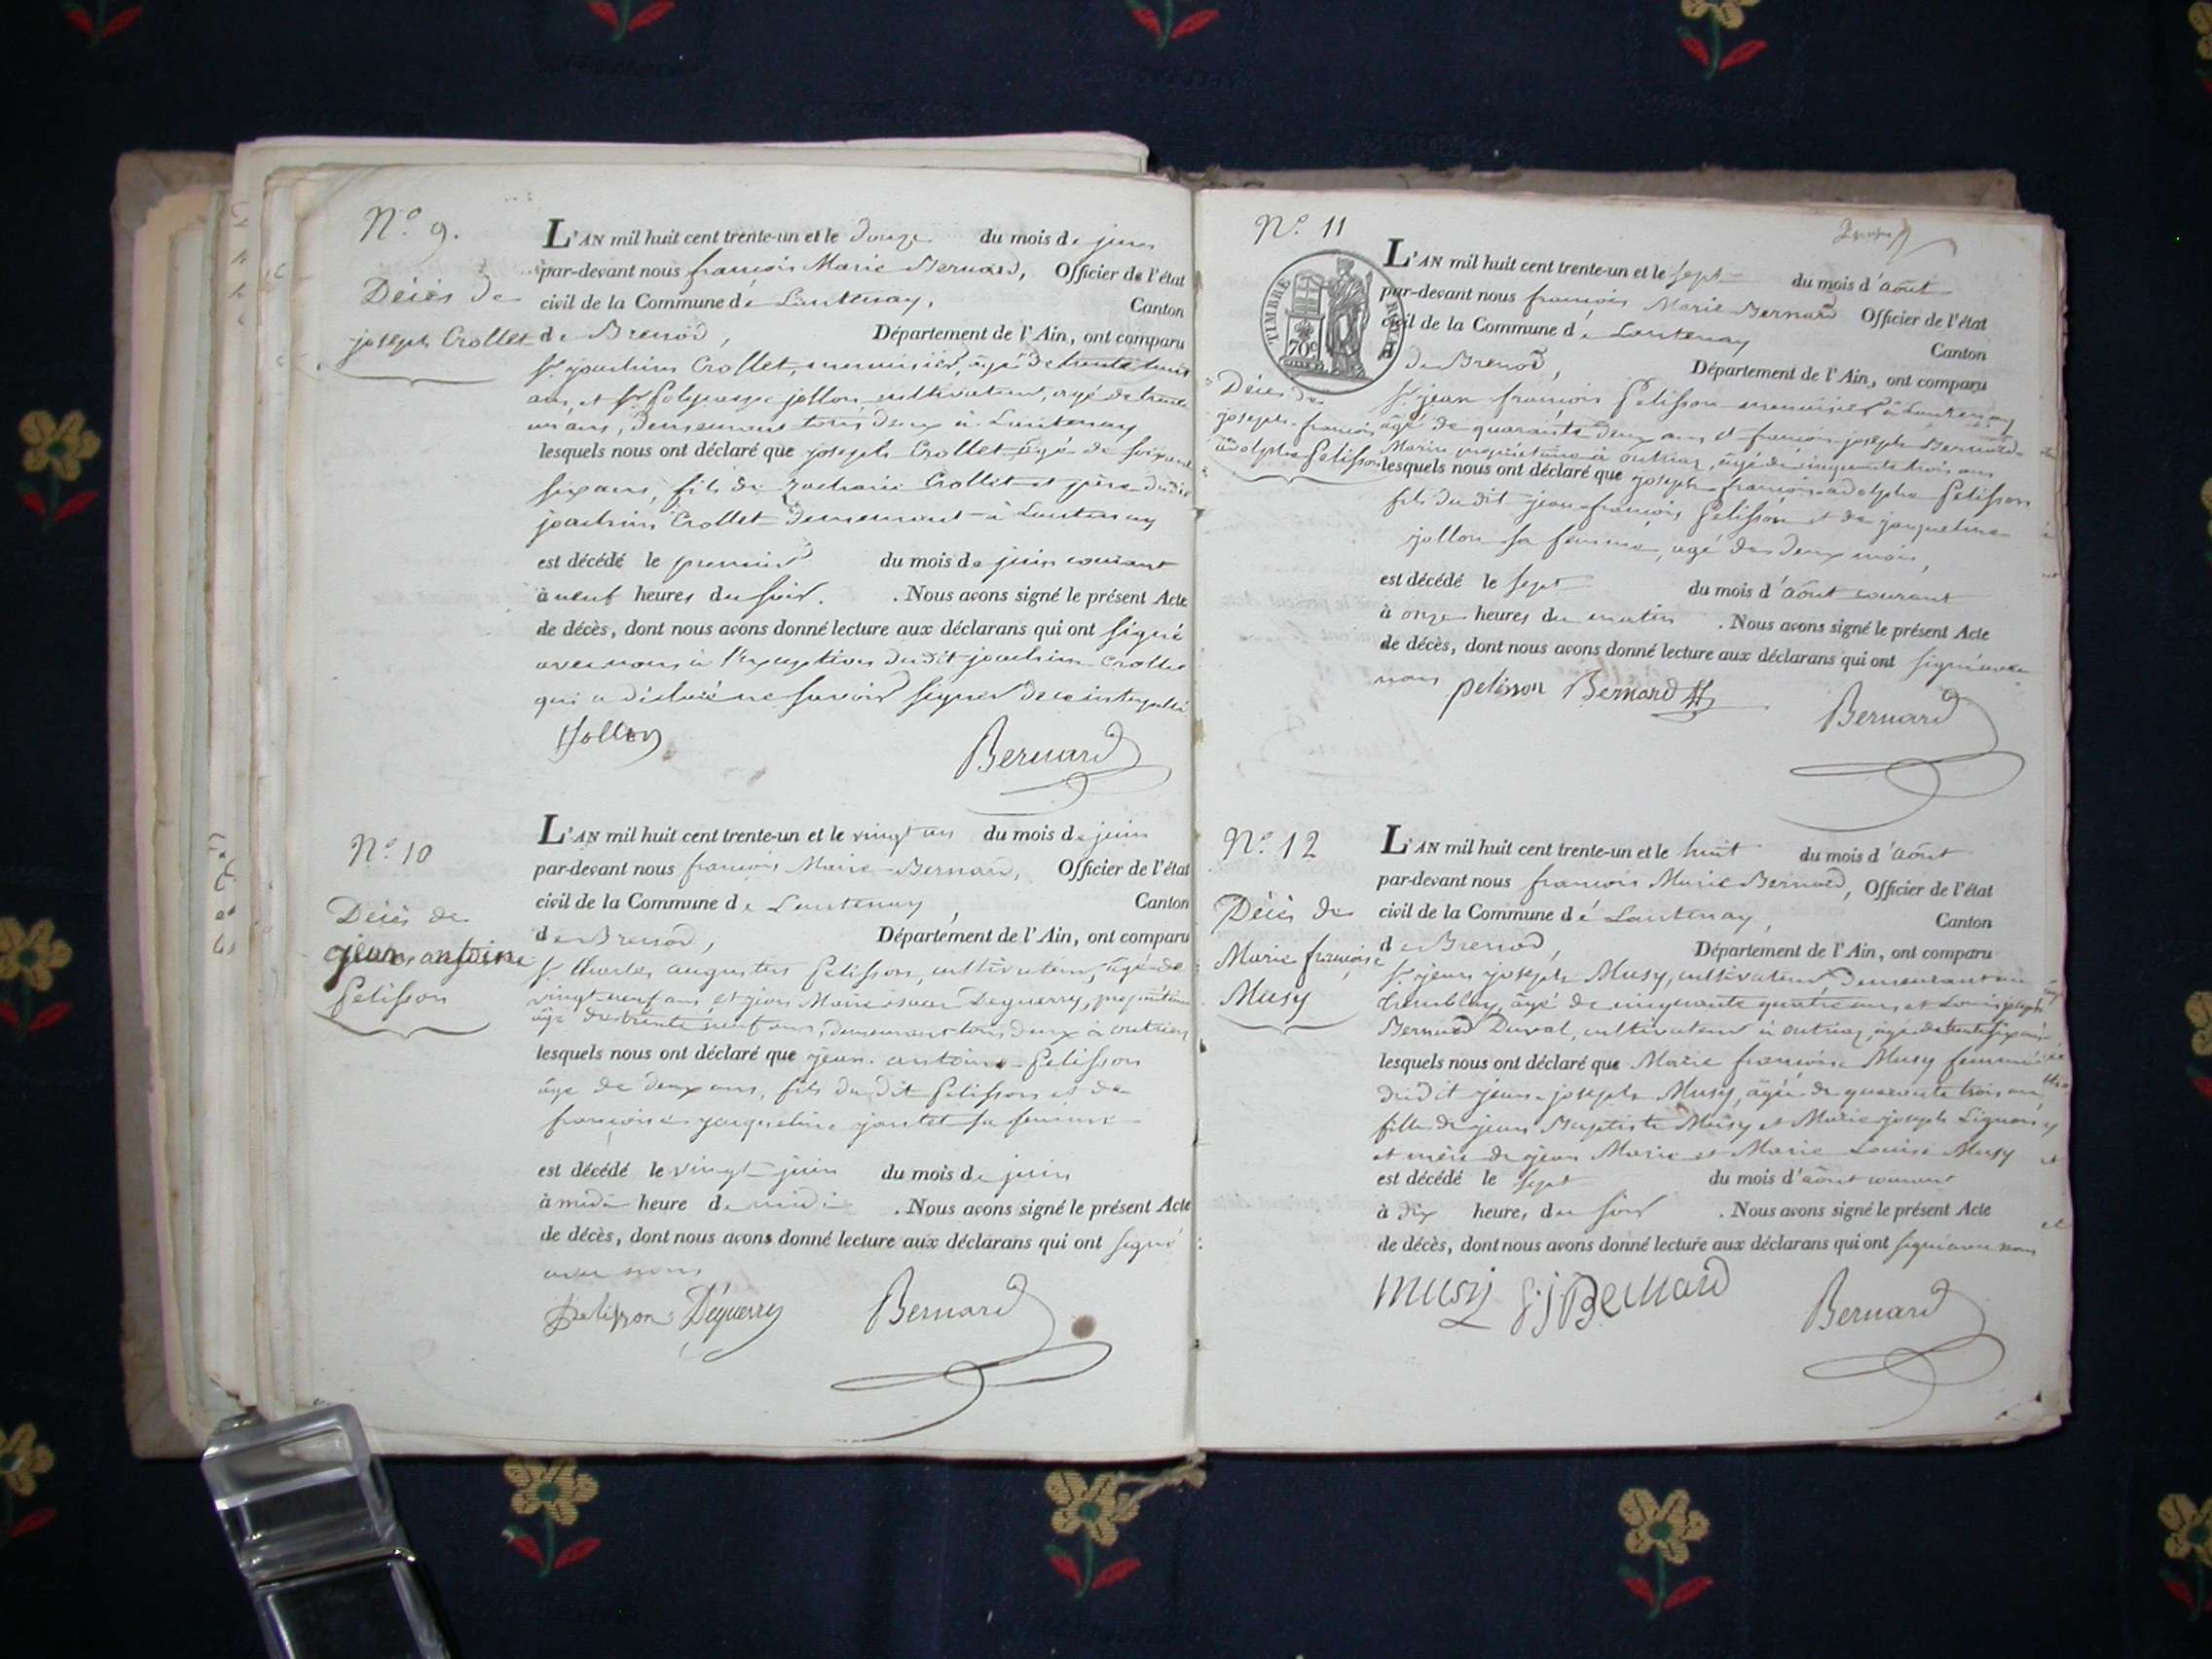 N.o 9.
Décès de
joseph Crollet
L'AN mil huit cent trente-un et le douze du mois de juin
par-devant nous françois Marie Bernard, Officier de l'état
civil de la Commune de Lantenay, Canton
de Brenod, Département de l'Ain, ont comparu
Sr. joachim Crollet, menuisier, âgé de trente trois
ans, et Sr. Polycarpe jollon, cultivateur, agé de trente
un ans, demeurant tous deux à Lantenay
lesquels nous ont déclaré que joseph Crollet âgé de soixante
six ans, fils de Zacharie Crollet et père dudit
joachim Crollet demeurant à Lantenay
est décédé le premier du mois de juin courant
à neuf heures du soir. . Nous avons signé le présent Acte
de décès, dont nous avons donné lecture aux déclarans qui ont signé
avec nous à l'exception dudit joachim Crollet
qui a déclaré ne savoir signer de ce interpellé
Jollon Bernard
N.o 10
Décès de
jean, antoine
Pelisson
L'AN mil huit cent trente-un et le vingt un du mois de juin
par-devant nous françois Marie Bernard, Officier de l'état
civil de la Commune de Lantenay, Canton
de Brenod, Département de l'Ain, ont comparu
Sr. Charles augustin Pelisson, cultivateur, âgé de
vingt neuf ans, et jean Marie Deguerry, propriétaire
âgé de trente neuf ans, demeurant tous deux à outriaz
lesquels nous ont déclaré que jean antoine Pelisson
âgé de deux ans, fils du dit Pelisson et de
françoise jacqueline jantet sa femme
est décédé le vingt juin du mois de juin
à midi heure de midi . Nous avons signé le présent Acte
de décès, dont nous avons donné lecture aux déclarans qui ont signé
avec nous
Pelisson Déguerry Bernard
N.o 11
TIMBRE ROYAL
70c
Décès de
joseph-françois
adolphe Pelisson
L'AN mil huit cent trente-un et le sept du mois d'août
par-devant nous françois Marie Bernard Officier de l'état
civil de la Commune de Lantenay Canton
de Brenod, Département de l'Ain, ont comparu
Sr. jean françois Pelisson menuisier à Lantenay
âgé de quarante deux ans et françois joseph Bernard
Marin propriétaire à outriaz, âgé de cinquante trois ans
lesquels nous ont déclaré que joseph-françois adolphe Pelisson
fils du dit jean françois Pelisson et de jacqueline
jollon sa femme, agé de deux mois,
est décédé le sept du mois d'août courant
à onze heures du matin . Nous avons signé le présent Acte
de décès, dont nous avons donné lecture aux déclarans qui ont signé avec
nous pelisson Bernard Bernard
N.o 12
Décès de
Marie françoise
Musy
L'AN mil huit cent trente-un et le huit du mois d'août
par-devant nous françois Marie Bernard, Officier de l'état
civil de la Commune de Lantenay, Canton
de Brenod, Département de l'Ain, ont comparu
Sr. jean joseph Musy, cultivateur demeurant au
tremblay, âgé de cinquante quatre ans et Louis joseph
Bernard Duval, cultivateur à outriaz, âgé de trente six ans
lesquels nous ont déclaré que Marie françoise Musy femme
dudit jean-joseph Musy, âgée de quarante trois ans
fille de jean Baptiste Musy et Marie joseph
et mère de jean Marie et Marie Louise Musy
est décédé le sept du mois d'août courant
à dix heures du soir . Nous avons signé le présent Acte
de décès, dont nous avons donné lecture aux déclarans qui ont signé avec nous
musy Bernard Bernard